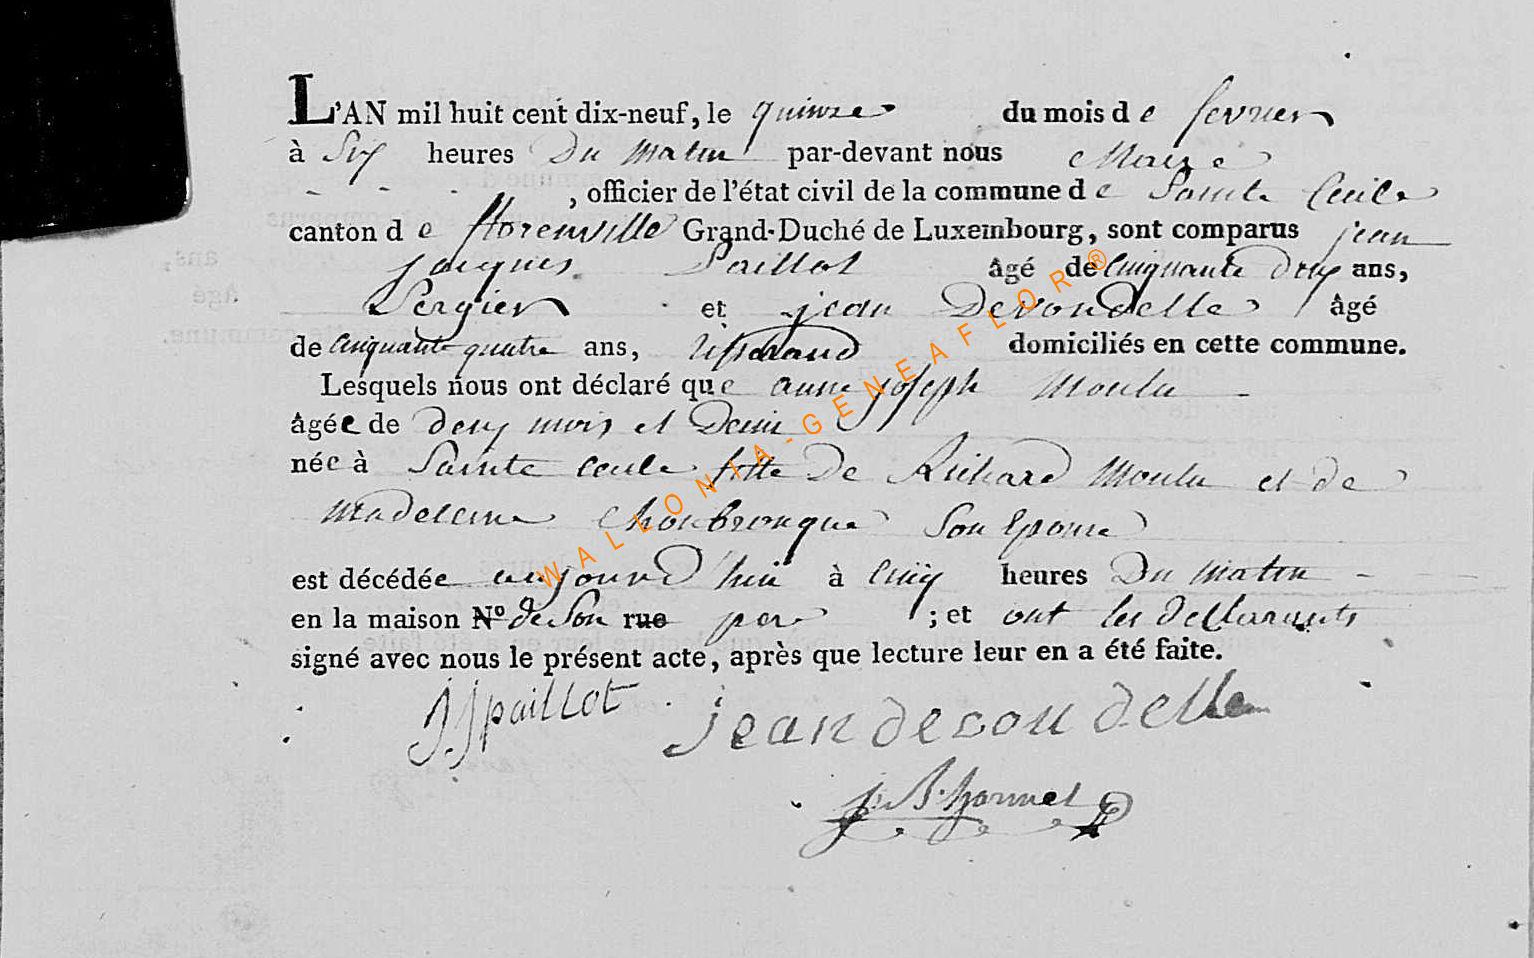 L'AN mil huit cent dix-neuf, le quinze du mois de fevrier
à Six heures Du Matin par-devant nous Maire
, officier de l'état civil de la commune de Sainte Cecile
canton de florenville Grand-Duché de Luxembourg, sont comparus jean
jacques Paillot âgé de Cinquante deux ans,
Bergier et jean Devondelle âgé
de Cinquante quatre ans, tisserand domiciliés en cette commune.
Lesquels nous ont déclaré que anne joseph Moulu
âgée de deux mois et Demi
née à Sainte Cecile fille De Richard Moulu et de
Madeleine son Epouse
est décédée aujourd'hui à Cinq heures Du Matin
en la maison N° de Son rue pere ; et ont les Declarants
signé avec nous le présent acte, après que lecture leur en a été faite.
JJ paillot jean devondelle
J. B. hannet
WALLONIA-GENEAFLOR®